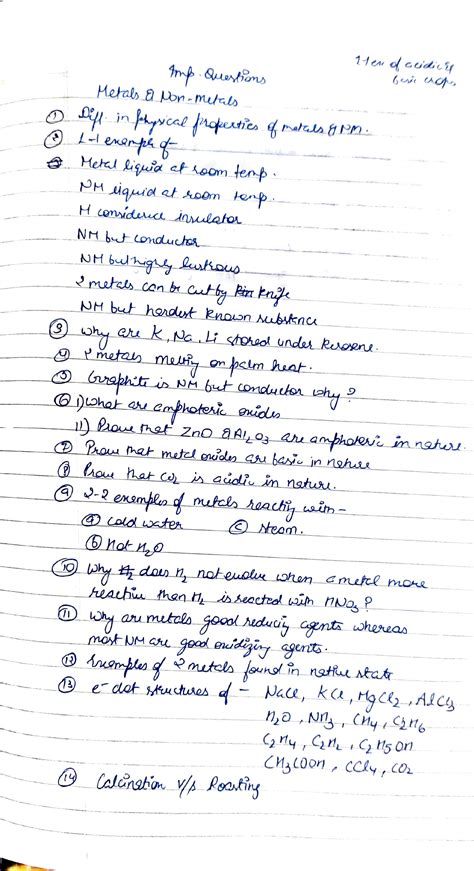 Imp. Questions
Metals & Non-metals
① Diff. in physical properties of metals & NM.
② 1-1 example of-
Metal liquid at room temp.
NM liquid at room temp.
M considered insulator
NM but conductor
NM but highly lustrous
2 metals can be cut by knife
NM but hardest known substance
③ why are K, Na, Li stored under kerosene.
④ 2 metals melting on palm heat.
⑤ Graphite is NM but conductor why?
⑥ i) what are amphoteric oxides
ii) Prove that ZnO & Al2O3 are amphoteric in nature.
⑦ Prove that metal oxides are basic in nature
⑧ Prove that CO2 is acidic in nature.
⑨ 2-2 examples of metals reacting with-
ⓐ cold water ⓒ steam.
ⓑ Hot H2O
⑩ why does H2 not evolve when a metal more
reactive than H2 is reacted with HNO3?
⑪ why are metals good reducing agents whereas
most NM are good oxidizing agents.
⑫ Examples of 2 metals found in native state
⑬ e- dot structures of - NaCl, KCl, MgCl2, AlCl3
H2O, NH3, CH4, C2H6
C2H4, C2H2, C2H5OH
CH3COOH, CCl4, CO2
⑭ Calcination v/s Roasting